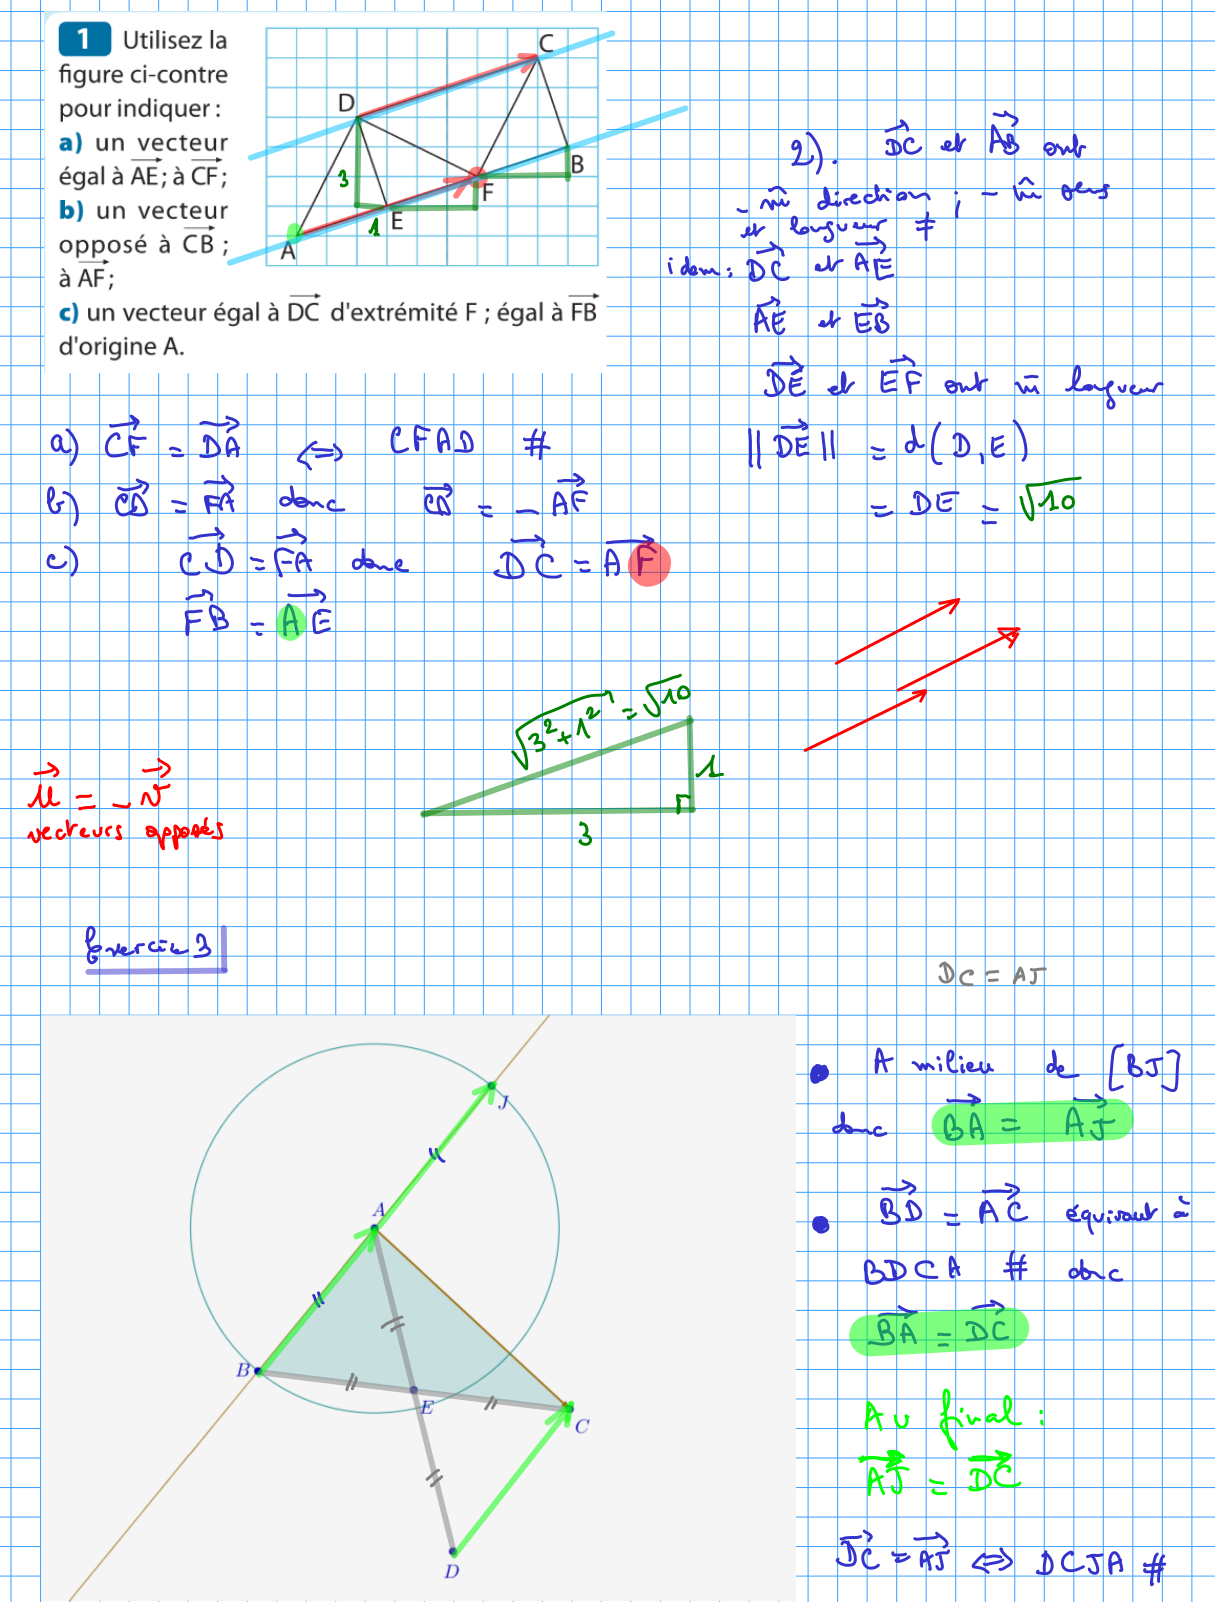 1 Utilisez la
figure ci-contre
pour indiquer :
a) un vecteur
égal à AE ; à CF ;
b) un vecteur
opposé à CB ;
à AF ;
c) un vecteur égal à DC d'extrémité F ; égal à FB
d'origine A.
C
D
B
F
E
A
3
1
2). DC et AB ont
- m̂ direction ; - m̂ sens
et longueur ≠
idem : DC et AE
AE et EB
DE et EF ont m̄ longueur
|| DE || = d(D,E)
= DE = √10
a) CF = DA ⇔ CFAD #
b) CD = FA donc CD = - AF
c) CD = FA donc DC = AF
FB = AE
√3²+1² = √10
1
3
u = - v
vecteurs opposés
Exercice 3
DC = AJ
J
A
B
E
C
D
• A milieu de [BJ]
donc BA = AJ
• BD = AC équivaut à
BDCA # donc
BA = DC
Au final :
AJ = DC
DC = AJ ⇔ DCJA #